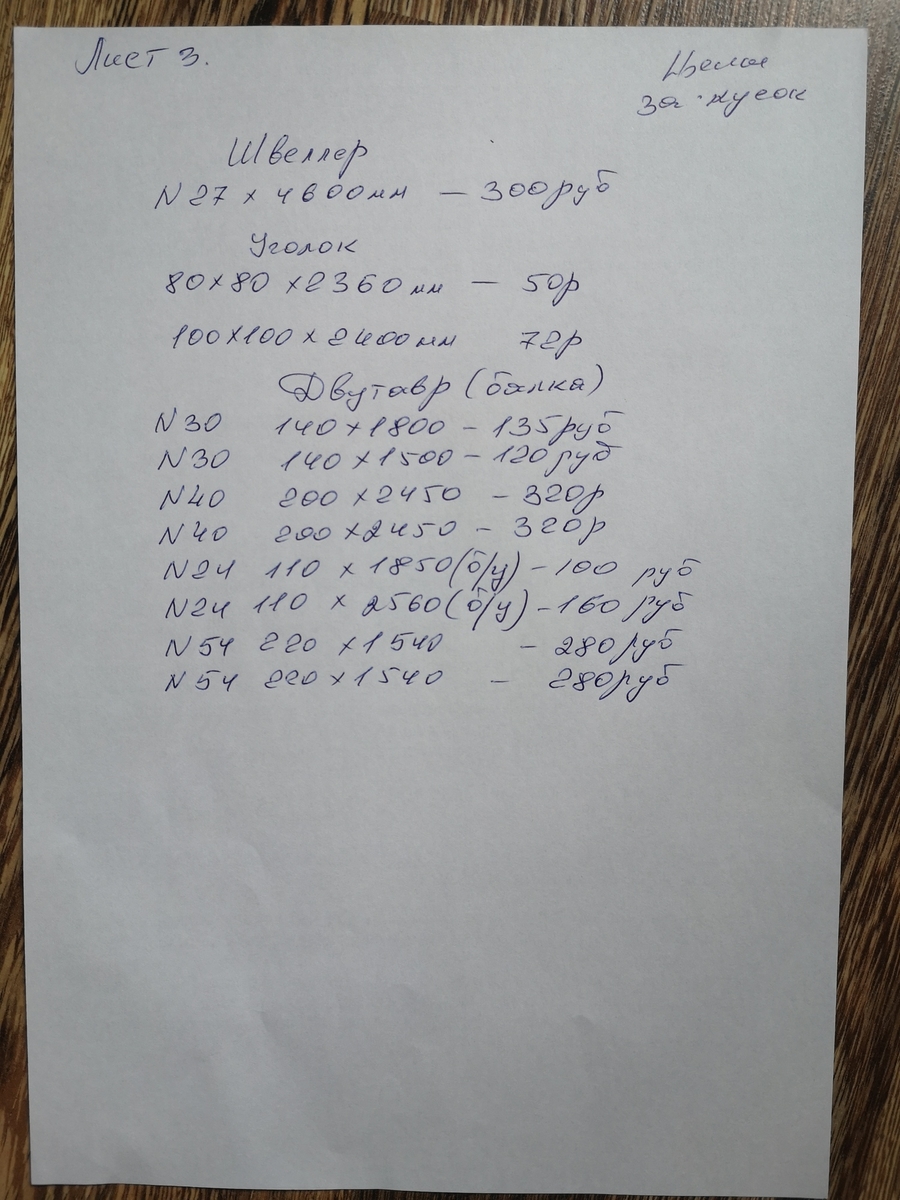 Лист 3.
Цена
за кусок
Швеллер
N27 x 4600мм — 300руб
Уголок
80x80 x2360мм — 50р
100x100 x 2400мм 72р
Двутавр (балка)
N30 140 x 1800 - 135руб
N30 140 x 1500 - 120руб
N40 200 x 2450 - 320р
N40 200 x 2450 - 320р
N24 110 x 1850(б/у) - 100 руб
N24 110 x 2560(б/у) - 160 руб
N54 220 x 1540 - 280руб
N54 220 x 1540 - 280руб